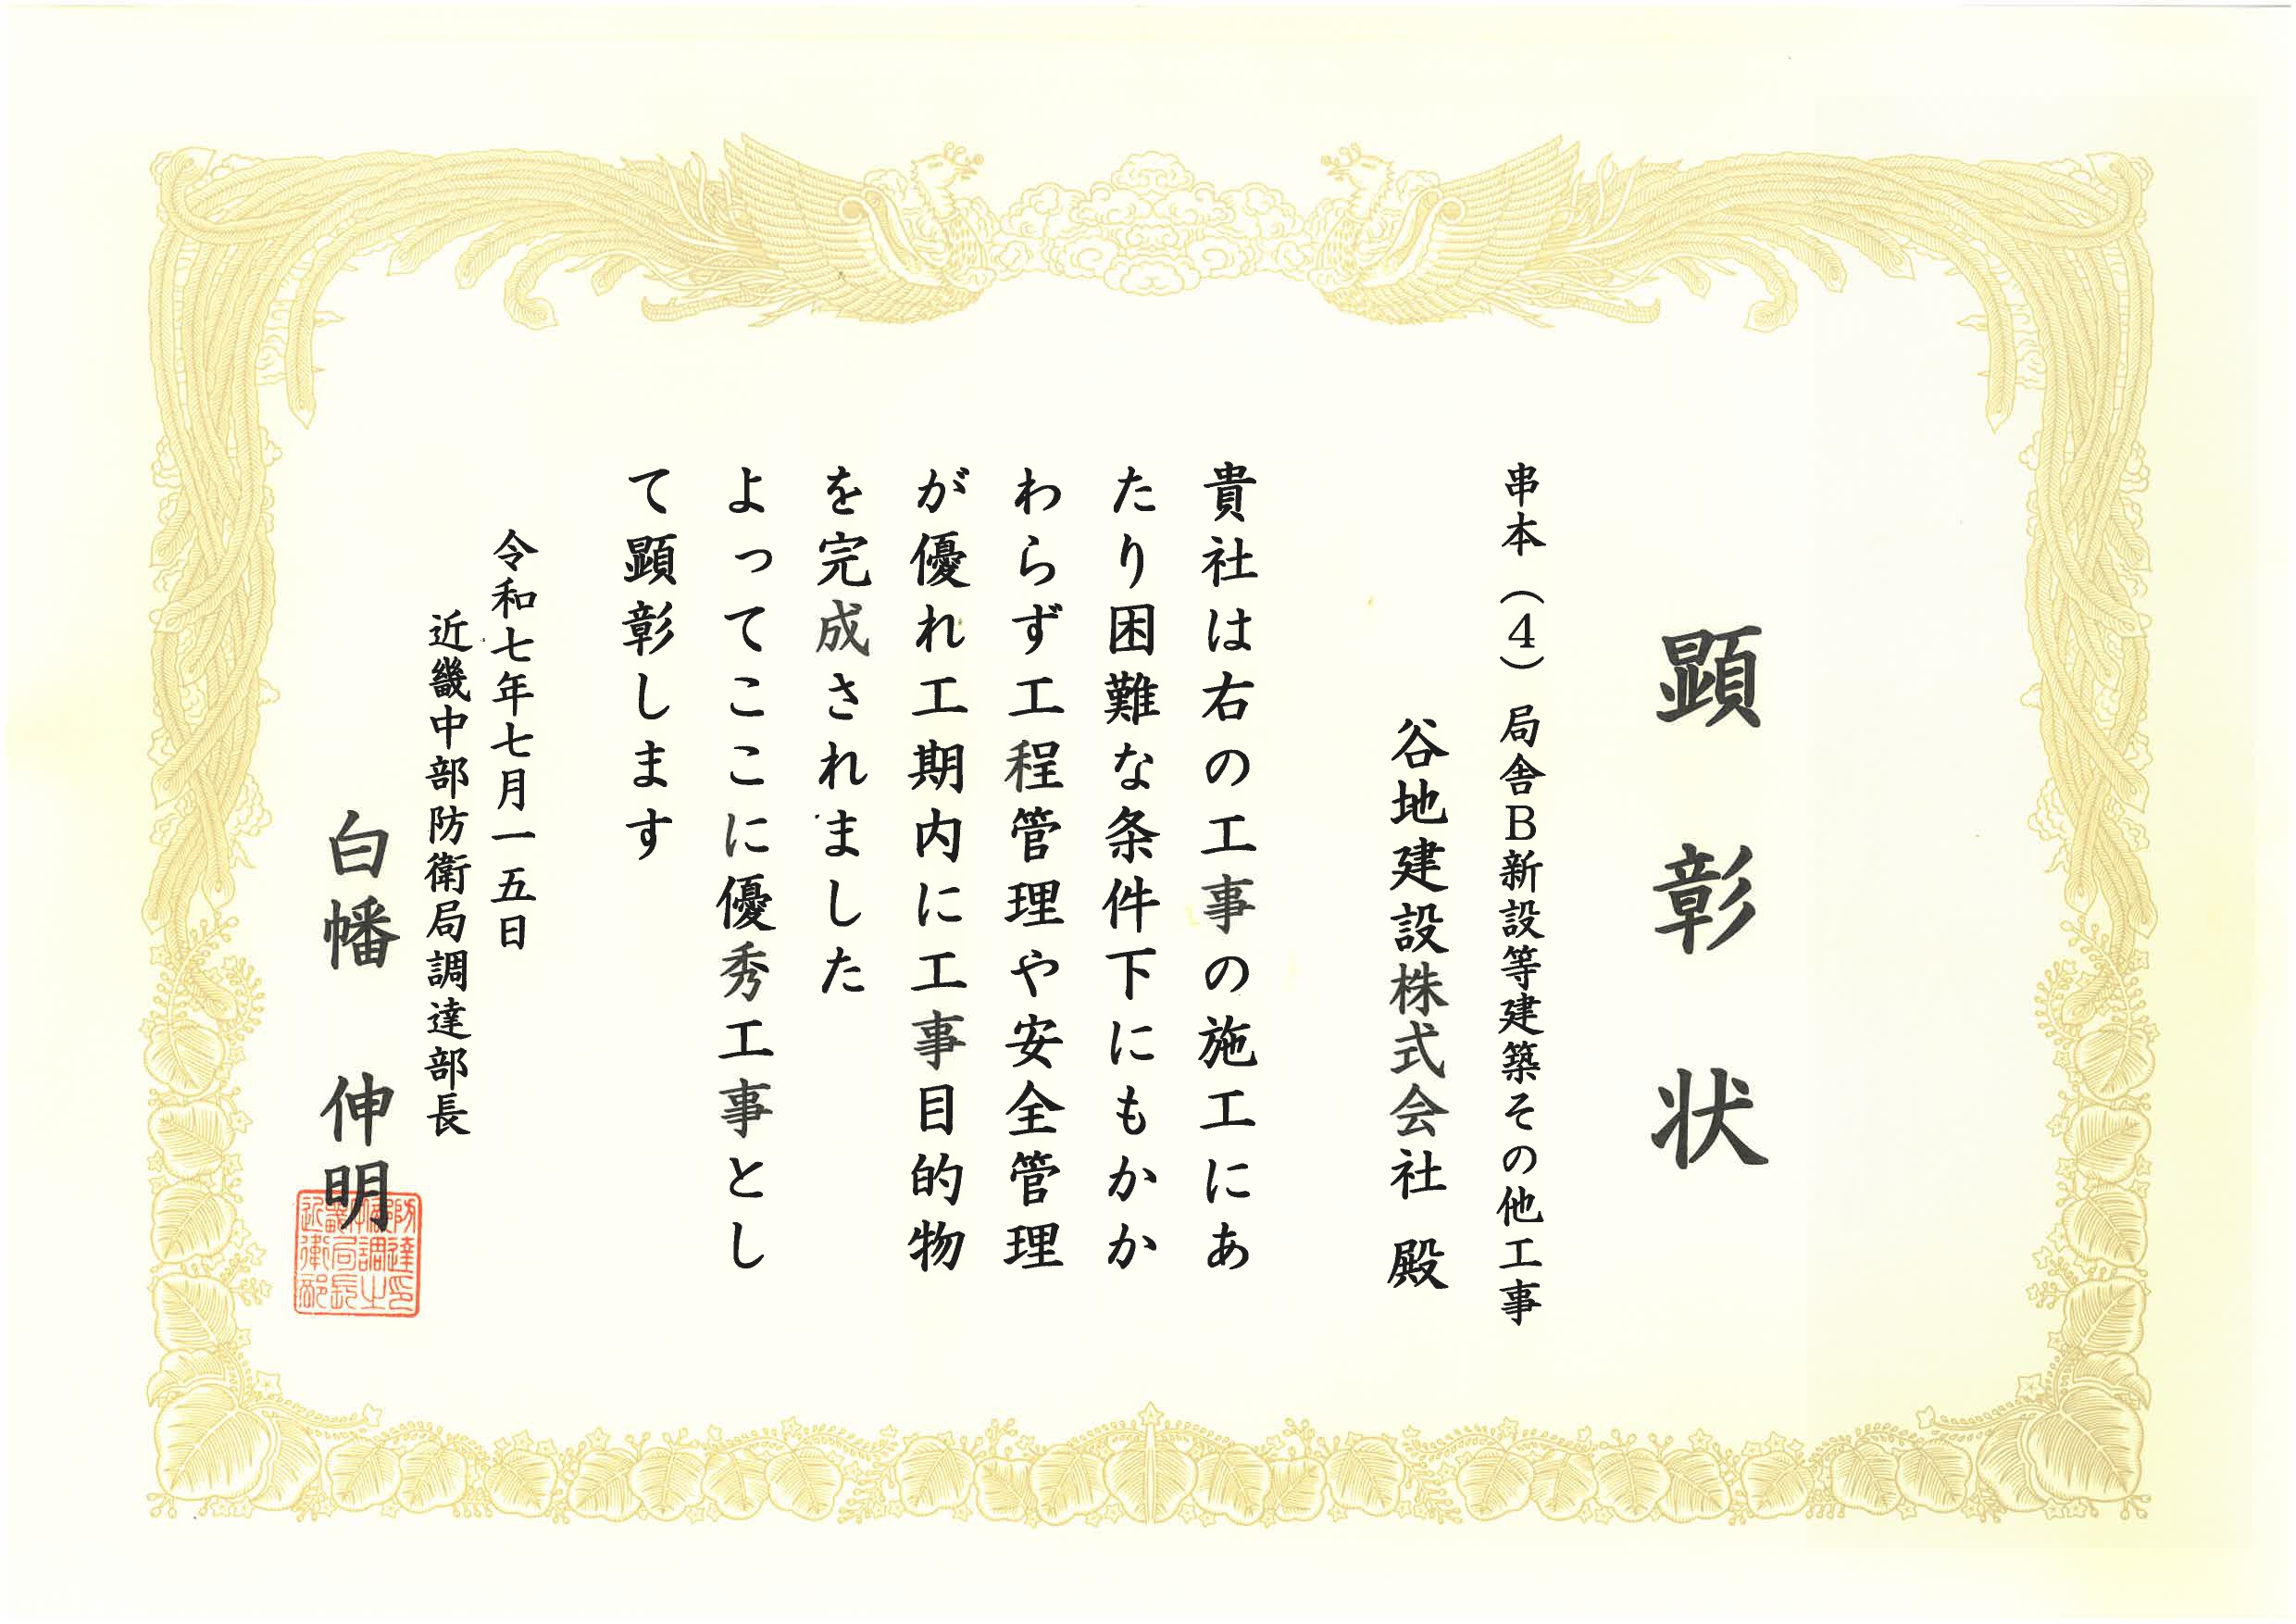 顕彰状
串本（4）局舎B新設等建築その他工事
谷地建設株式会社 殿
貴社は右の工事の施工にあ
たり困難な条件下にもかか
わらず工程管理や安全管理
が優れ工期内に工事目的物
を完成されました
よってここに優秀工事とし
て顕彰します
令和七年七月一五日
近畿中部防衛局調達部長
白幡 伸明